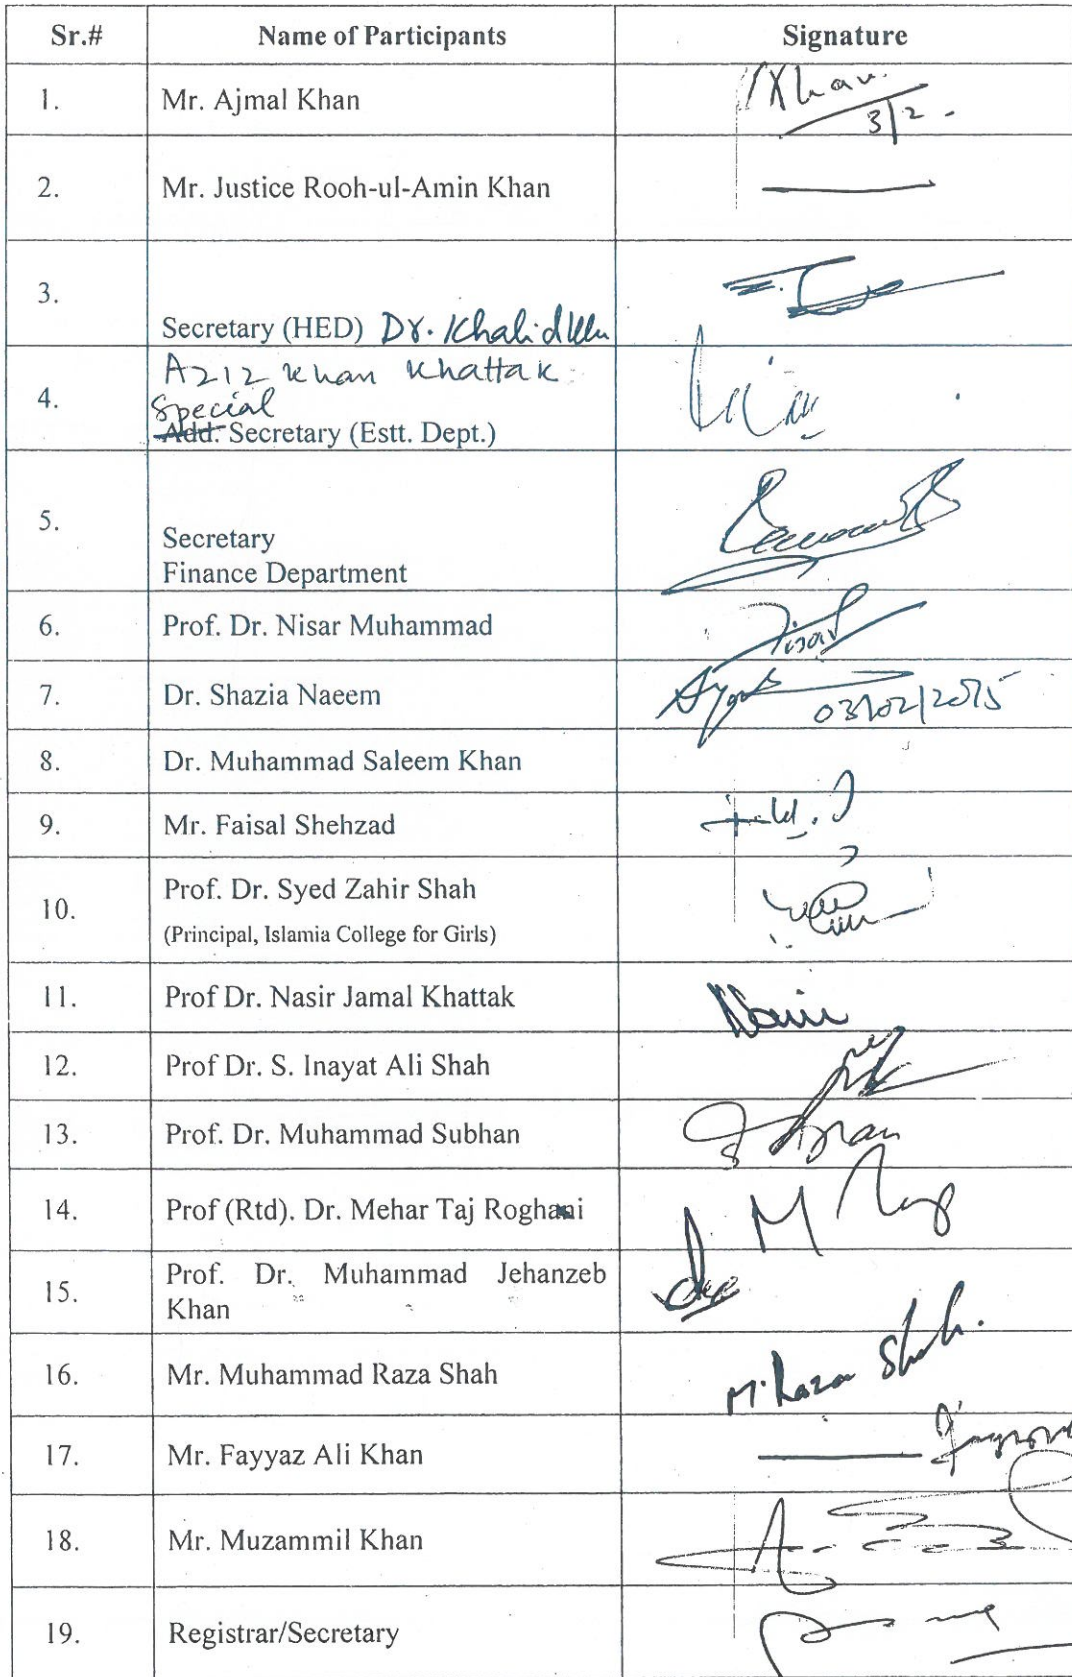 Sr.# Name of Participants Signature
1. Mr. Ajmal Khan Khan
3/2
2. Mr. Justice Rooh-ul-Amin Khan
3.
Secretary (HED) Dr. Khalid
Aziz Khan Khattak
4.
Special
Add. Secretary (Estt. Dept.)
5.
Secretary
Finance Department
6. Prof. Dr. Nisar Muhammad Nisar
7. Dr. Shazia Naeem 03/02/2015
8. Dr. Muhammad Saleem Khan
9. Mr. Faisal Shehzad
10. Prof. Dr. Syed Zahir Shah
(Principal, Islamia College for Girls)
11. Prof Dr. Nasir Jamal Khattak
12. Prof Dr. S. Inayat Ali Shah
13. Prof. Dr. Muhammad Subhan
14. Prof (Rtd). Dr. Mehar Taj Roghani
15. Prof. Dr. Muhammad Jehanzeb
Khan
16. Mr. Muhammad Raza Shah M. Raza Shah.
17. Mr. Fayyaz Ali Khan
18. Mr. Muzammil Khan
19. Registrar/Secretary